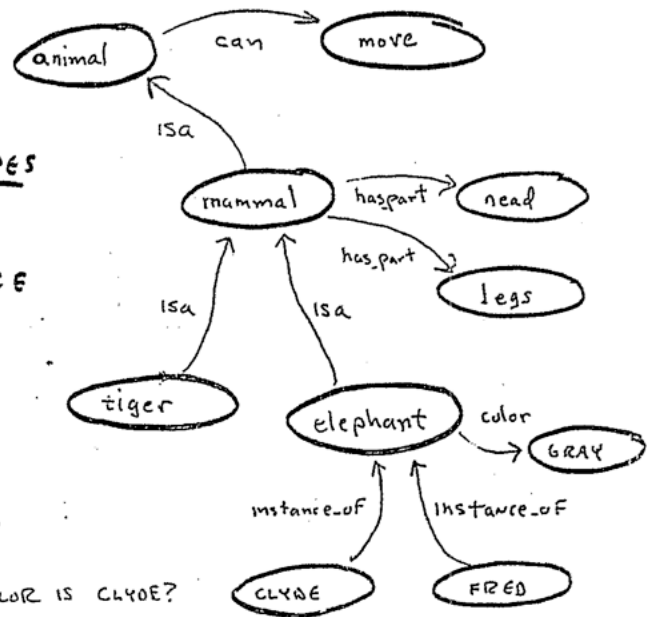 animal can move
isa
DES
mammal has_part head
has_part
CE
legs
isa isa
tiger elephant color
GRAY
instance_of instance_of
LOR IS CLYDE? CLYDE FRED